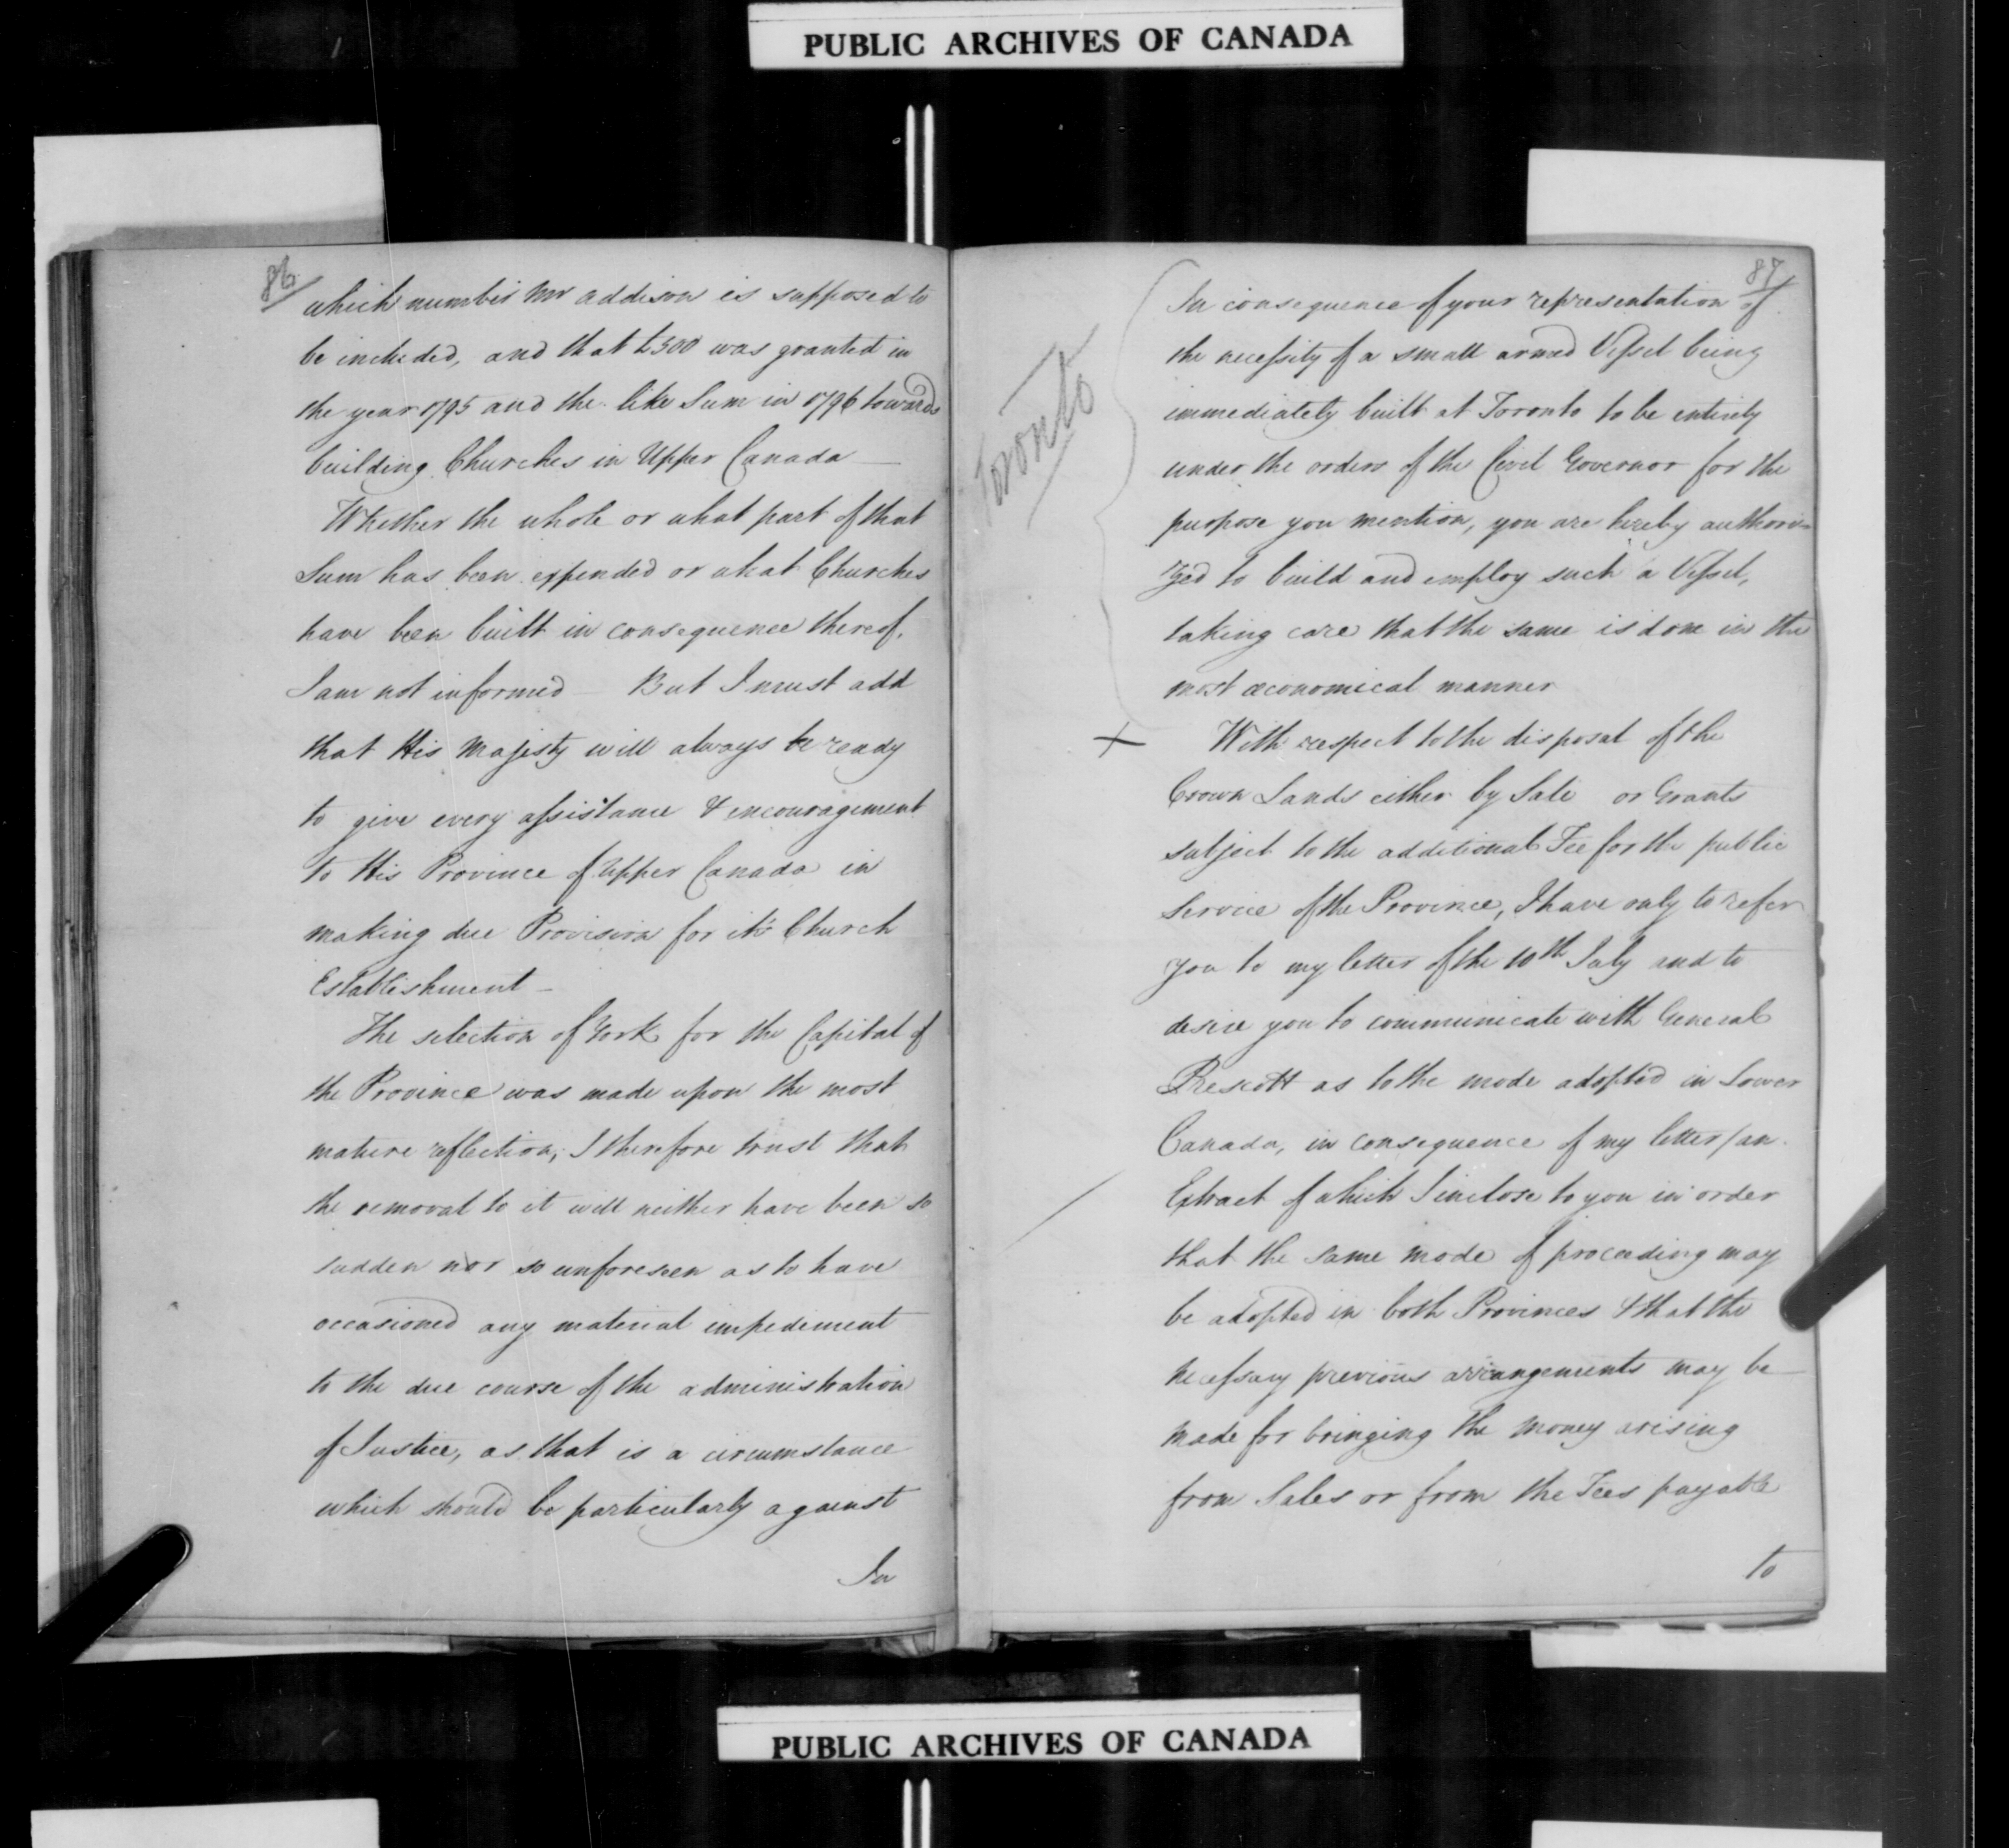 PUBLIC ARCHIVES OF CANADA
86
which number Mr Addison is supposed to
be included, and that £500 was granted in
the year 1795 and the like Sum in 1796 towards
building Churches in Upper Canada —
Whether the whole or what part of that
Sum has been expended or what Churches
have been built in consequence thereof,
I am not informed — But I must add
that His Majesty will always be ready
to give every assistance & encouragement
to His Province of Upper Canada in
making due Provision for it's Church
Establishment —
The selection of York for the Capital of
the Province was made upon the most
mature reflection; I therefore trust that
the removal to it will neither have been so
sudden nor so unforeseen as to have
occasioned any material impediment
to the due course of the administration
of Justice, as that is a circumstance
which should be particularly against
In
87
Toronto
In consequence of your representation of
the necessity of a small armed Vessel being
immediately built at Toronto to be entirely
under the orders of the Civil Governor for the
purpose you mention, you are hereby authori=
zed to build and employ such a Vessel,
taking care that the same is done in the
most œconomical manner
With respect to the disposal of the
Crown Lands either by Sale or Grants
subject to the additional Fee for the public
Service of the Province, I have only to refer
you to my letter of the 10th July and to
desire you to communicate with General
Prescott as to the mode adopted in Lower
Canada, in consequence of my letter/an
Extract of which I inclose to you in order
that the same mode of proceeding may
be adopted in both Provinces & that the
necessary previous arrangements may be
made for bringing the money arising
from Sales or from the Fees payable
to
PUBLIC ARCHIVES OF CANADA